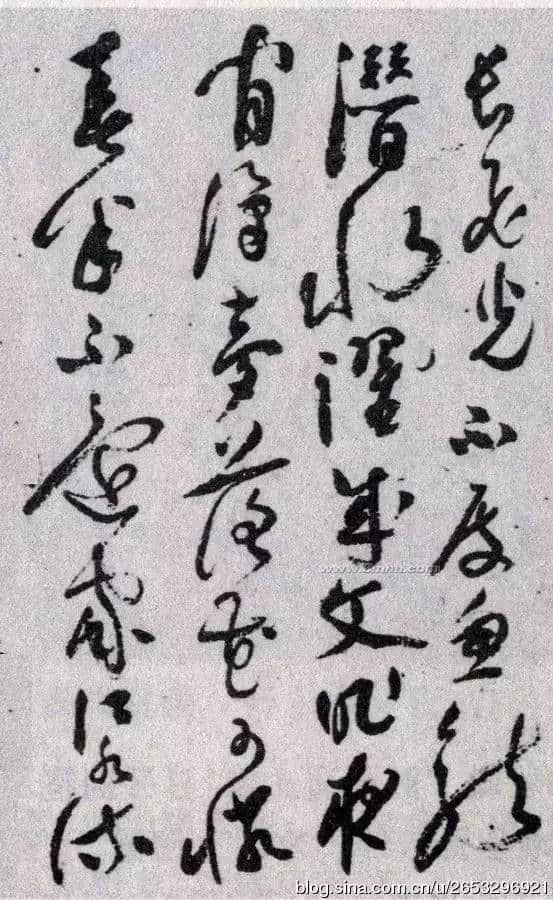 長飛光不度魚龍
潛水躍成文昨夜
閒潭夢落花可憐
春半不還家江水流
blog.sina.com.cn/u/2653296921